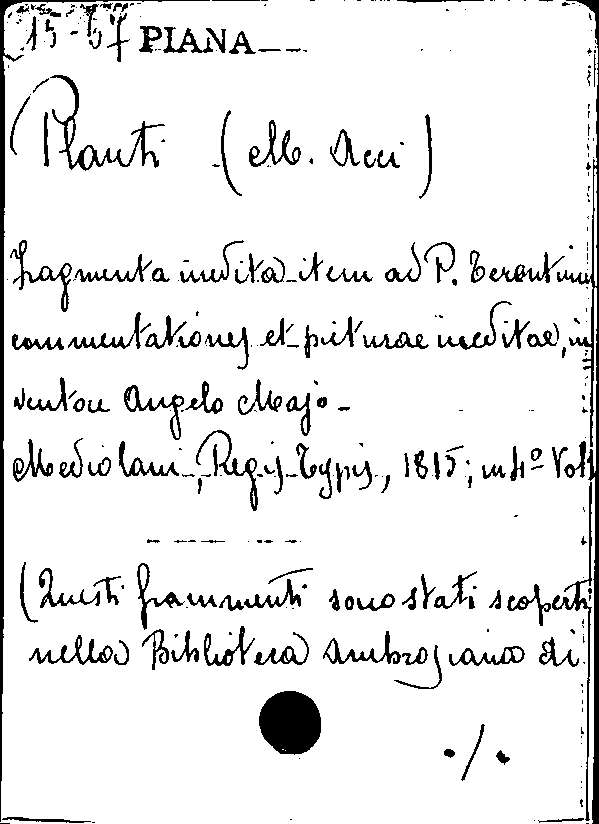 15-67 PIANA
Plauti (M. Acci)
Fragmenta inedita item ad P. Terentium
commentationes et picturae ineditae, in
ventore Angelo Majo -
Mediolani, Regis Typis, 1815; in 4º Vol 1
(Questi frammenti sono stati scoperti
nella Biblioteca Ambrosiana di
./.